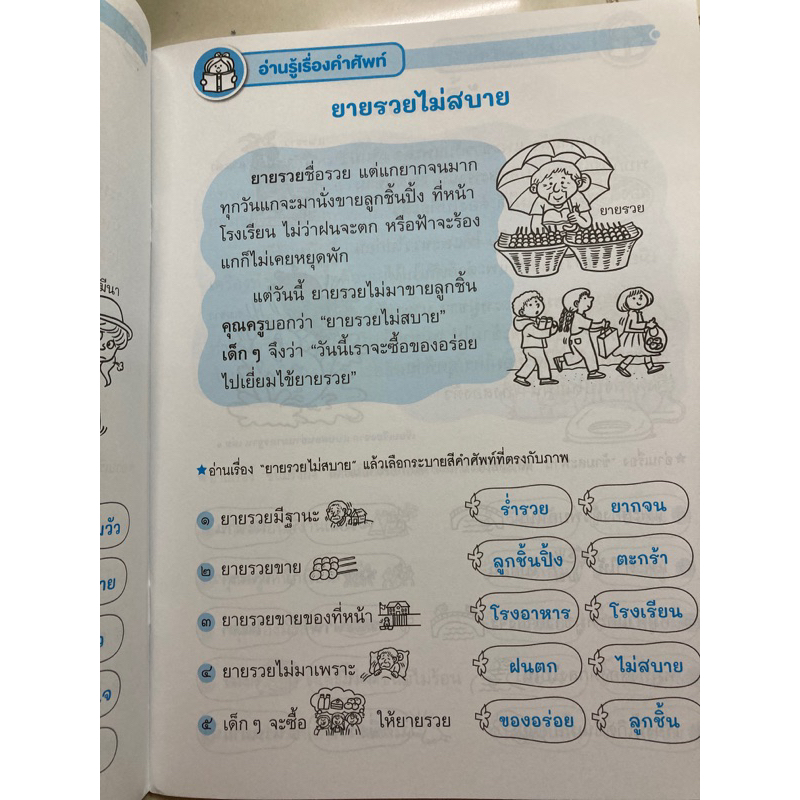 อ่านรู้เรื่องคำศัพท์
ยายรวยไม่สบาย
ยายรวยชื่อรวย แต่แกยากจนมาก
ทุกวันแกจะมานั่งขายลูกชิ้นปิ้ง ที่หน้า
โรงเรียน ไม่ว่าฝนจะตก หรือฟ้าจะร้อง
แกก็ไม่เคยหยุดพัก
ยายรวย
แต่วันนี้ ยายรวยไม่มาขายลูกชิ้น
คุณครูบอกว่า “ยายรวยไม่สบาย”
เด็ก ๆ จึงว่า “วันนี้เราจะซื้อของอร่อย
ไปเยี่ยมไข้ยายรวย”
★อ่านเรื่อง “ยายรวยไม่สบาย” แล้วเลือกระบายสีคำศัพท์ที่ตรงกับภาพ
๑ ยายรวยมีฐานะ ร่ำรวย ยากจน
๒ ยายรวยขาย ลูกชิ้นปิ้ง ตะกร้า
๓ ยายรวยขายของที่หน้า โรงอาหาร โรงเรียน
๔ ยายรวยไม่มาเพราะ ฝนตก ไม่สบาย
๕ เด็ก ๆ จะซื้อ ให้ยายรวย ของอร่อย ลูกชิ้น
มีนา